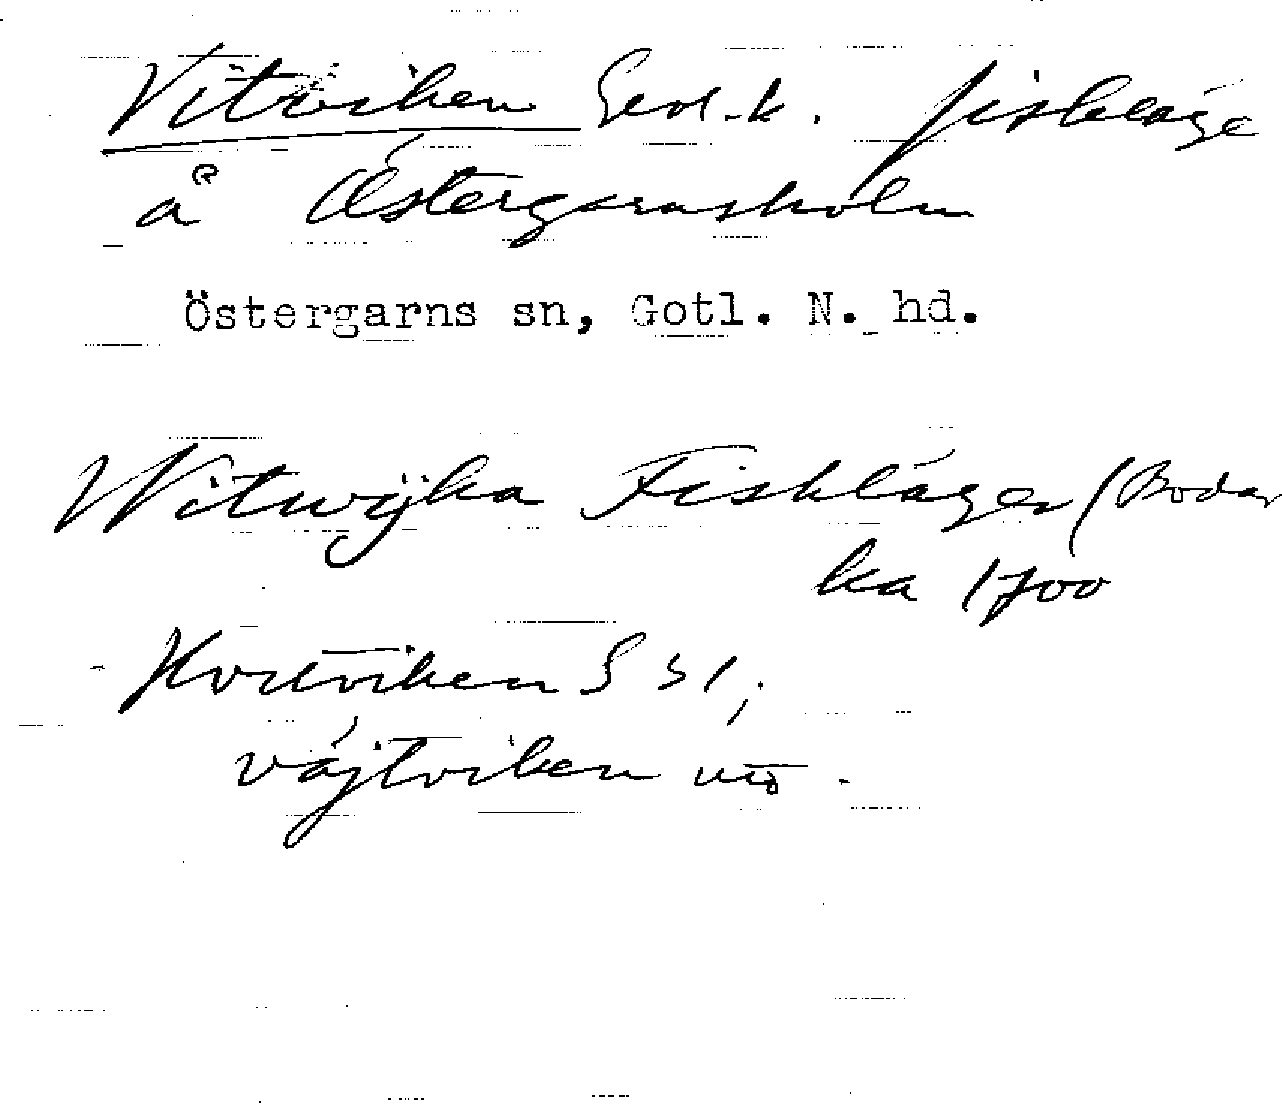 Vitviken Geol.k. fiskläge
å Östergarnsholm
Östergarns sn, Gotl. N. hd.
Witwijka Fiskläger (Bodar
ka 1700
S 51,
vájtviken